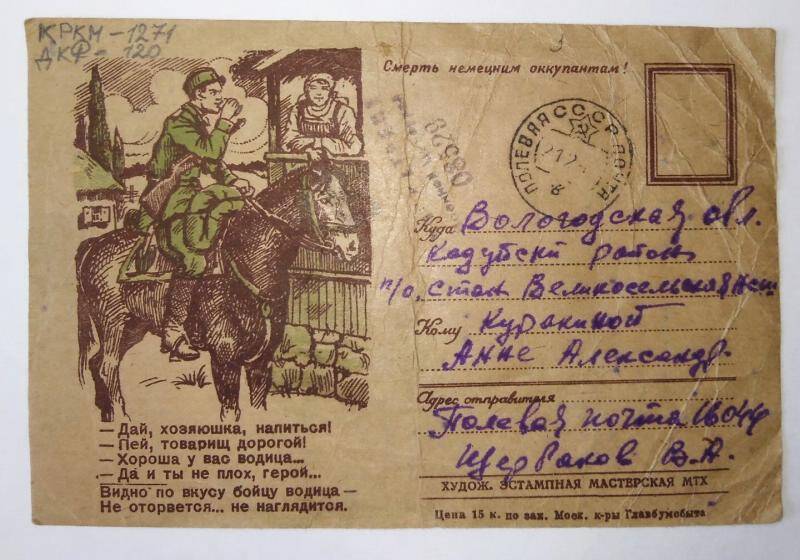 КРКМ-1271
ДКФ-120
Смерть немецким оккупантам!
ПОЛЕВАЯ ПОЧТА СССР
08529
Куда Вологодская обл.
Кадуйски район
п/о, Стан Великосельская
Кому Куракиной
Анне Александр.
Адрес отправителя
Полевая почта 16044
Щербаков В.А.
ХУДОЖ. ЭСТАМПНАЯ МАСТЕРСКАЯ МТХ
Цена 15 к. по зак. Моск. к-ры Главбумсбыта
— Дай, хозяюшка, напиться!
— Пей, товарищ дорогой!
— Хороша у вас водица...
— Да и ты не плох, герой...
Видно по вкусу бойцу водица —
Не оторвется... не наглядится.